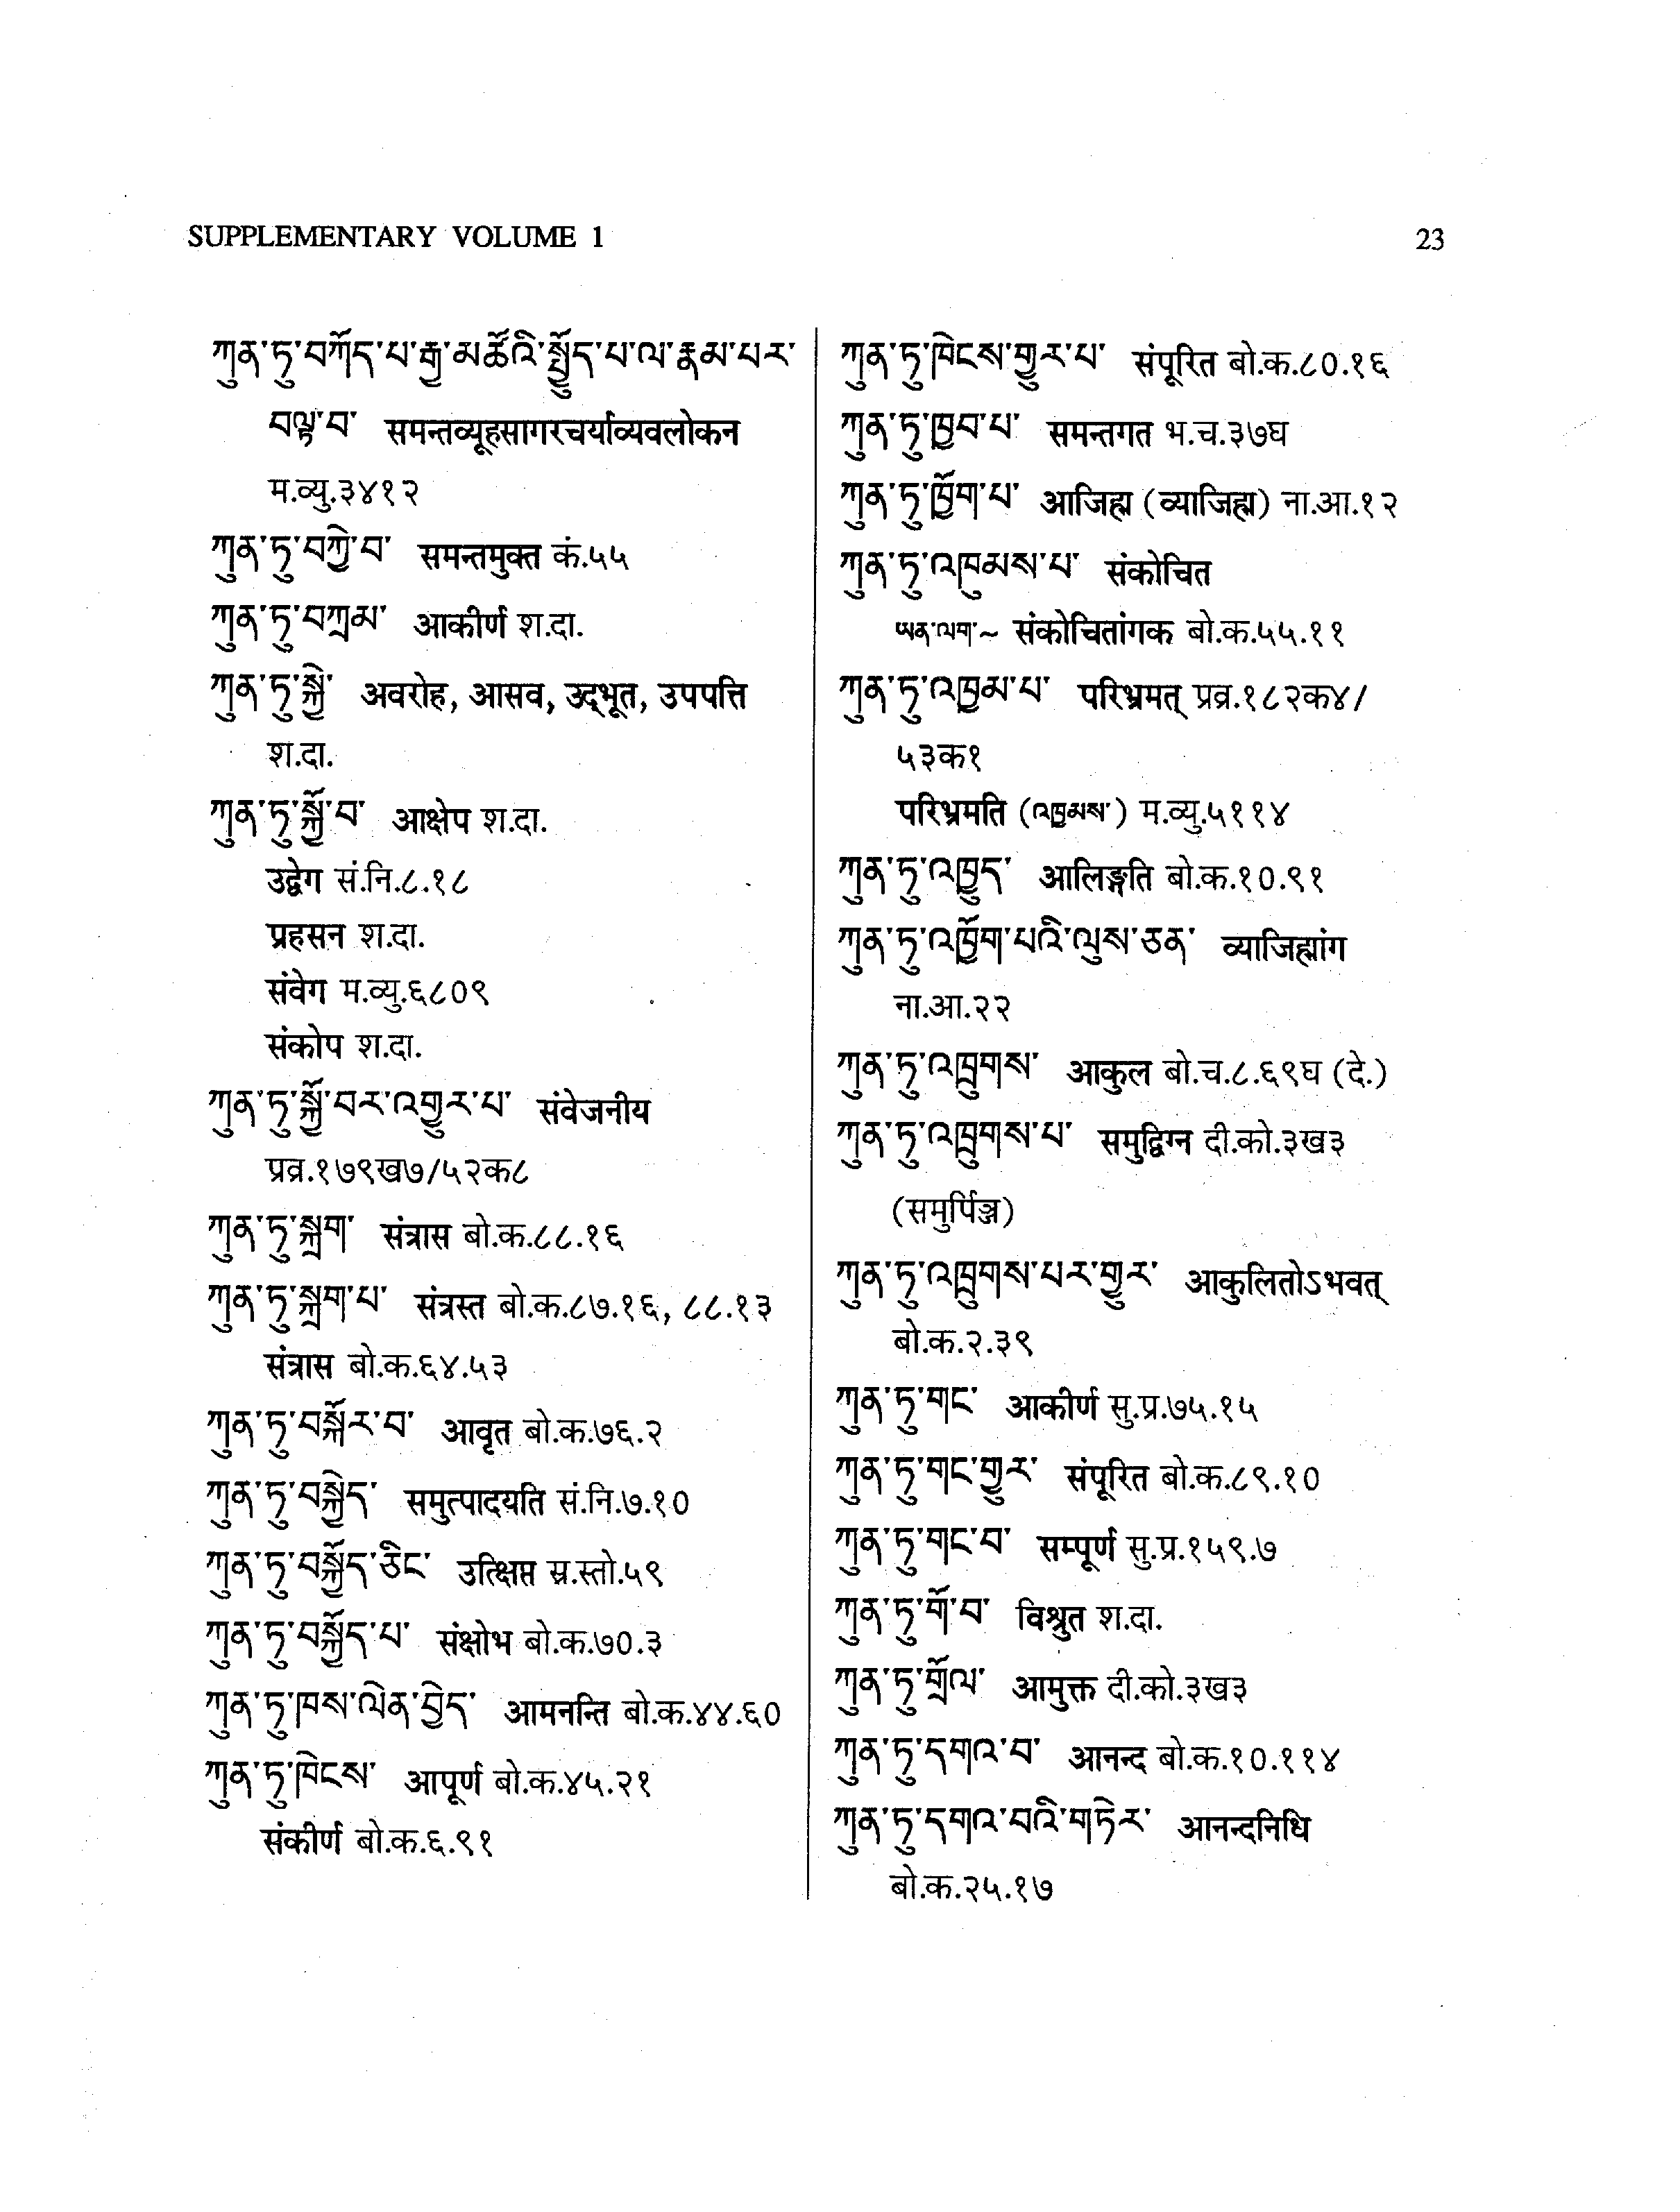 SUPPLEMENTARY VOLUME 1
23
ཀུན་ཏུ་བཀོད་པ་རྒྱ་མཚོའི་སྤྱོད་པ་ལ་རྣམ་པར་
བལྟ་བ་ समन्तव्यूहसागरचर्याव्यवलोकन
म.व्यु.३४१२
ཀུན་ཏུ་བཀྱེ་བ་ समन्तमुक्त कं.५५
ཀུན་ཏུ་བཀྲམ་ आकीर्ण श.दा.
ཀུན་ཏུ་སྐྱེ་ अवरोह, आसव, उद्भूत, उपपत्ति
श.दा.
ཀུན་ཏུ་སྐྱོ་བ་ आक्षेप श.दा.
उद्वेग सं.नि.८.१८
प्रहसन श.दा.
संवेग म.व्यु.६८०९
संकोप श.दा.
ཀུན་ཏུ་སྐྱོ་བར་འགྱུར་པ་ संवेजनीय
प्रव्र.१७९ख७/५२क८
ཀུན་ཏུ་སྐྲག་ संत्रास बो.क.८८.१६
ཀུན་ཏུ་སྐྲག་པ་ संत्रस्त बो.क.८७.१६, ८८.१३
संत्रास बो.क.६४.५३
ཀུན་ཏུ་བསྐོར་བ་ आवृत बो.क.७६.२
ཀུན་ཏུ་བསྐྱེད་ समुत्पादयति सं.नि.७.१०
ཀུན་ཏུ་བསྐྱོད་ཅིང་ उत्क्षिप्त स्र.स्तो.५९
ཀུན་ཏུ་བསྐྱོད་པ་ संक्षोभ बो.क.७०.३
ཀུན་ཏུ་ཁས་ལེན་བྱེད་ आमनन्ति बो.क.४४.६०
ཀུན་ཏུ་ཁེངས་ आपूर्ण बो.क.४५.२१
संकीर्ण बो.क.६.९१
ཀུན་ཏུ་ཁེངས་གྱུར་པ་ संपूरित बो.क.८०.१६
ཀུན་ཏུ་ཁྱབ་པ་ समन्तगत भ.च.३७घ
ཀུན་ཏུ་ཁྱོག་པ་ आजिह्म (व्याजिह्म) ना.आ.१२
ཀུན་ཏུ་འཁུམས་པ་ संकोचित
ཡན་ལག་~ संकोचितांगक बो.क.५५.११
ཀུན་ཏུ་འཁྱམ་པ་ परिभ्रमत् प्रव्र.१८२क४/
५३क१
परिभ्रमति (འཁྱམས་) म.व्यु.५११४
ཀུན་ཏུ་འཁྱུད་ आलिङ्गति बो.क.१०.९१
ཀུན་ཏུ་འཁྱོག་པའི་ལུས་ཅན་ व्याजिह्मांग
ना.आ.२२
ཀུན་ཏུ་འཁྲུགས་ आकुल बो.च.८.६९घ (दे.)
ཀུན་ཏུ་འཁྲུགས་པ་ समुद्विग्न दी.को.३ख३
(समुर्पिञ्ज)
ཀུན་ཏུ་འཁྲུགས་པར་གྱུར་ आकुलितोऽभवत्
बो.क.२.३९
ཀུན་ཏུ་གང་ आकीर्ण सु.प्र.७५.१५
ཀུན་ཏུ་གང་གྱུར་ संपूरित बो.क.८९.१०
ཀུན་ཏུ་གང་བ་ सम्पूर्ण सु.प्र.१५९.७
ཀུན་ཏུ་གོ་བ་ विश्रुत श.दा.
ཀུན་ཏུ་གྲོལ་ आमुक्त दी.को.३ख३
ཀུན་ཏུ་དགའ་བ་ आनन्द बो.क.१०.११४
ཀུན་ཏུ་དགའ་བའི་གཏེར་ आनन्दनिधि
बो.क.२५.१७